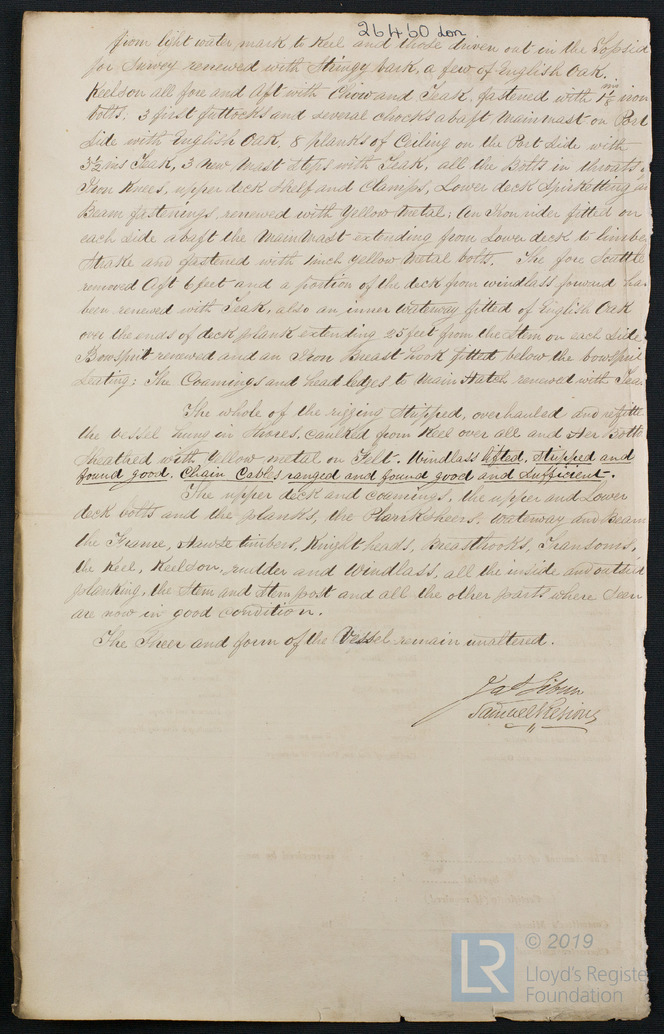 26460 Lon
from light water mark to keel and those driven out in the Topsid
for Survey renewed with Stringy bark, a few of English Oak.
Keelson all fore and aft with Chow and Teak, fastened with 1 1/8 in iron
bolts. 3 first futtocks and several chocks abaft Mainmast on Port
Side with English Oak, 8 planks of Ceiling on the Port Side with
3½ ins Teak, 3 new Mast Steps with Teak, all the Bolts in throats
Iron Knees, upper deck Shelf and Clamps, Lower deck Spirketting an
Beam fastenings, renewed with Yellow Metal; An Iron rider fitted on
each side abaft the Main Mast extending from Lower deck to limbe
Strake and fastened with inch yellow Metal bolts. The fore Scuttle
removed Aft 6 feet and a portion of the deck from windlass forward ha
been renewed with Teak, also an inner waterway fitted of English Oak
over the ends of deck plank extending 25 feet from the Stem on each Side
Bowsprit renewed and an Iron Breast hook fitted below the bowsprit
Seating: The Coamings and head ledges to Main Hatch renewed with Tea
The whole of the rigging Stripped, overhauled and refitte
the vessel hung in Shores, Caulked from Keel over all and Her Botto
Sheathed with Yellow metal on Felt. Windlass lifted, Stripped and
found good. Chain Cables ranged and found good and sufficient.
The upper deck and coamings, the upper and Lower
deck bolts and the planks, the Planksheers, waterway and Beam
the Frame, Hawse timbers, Knight heads, Breasthooks, Transoms,
the Keel, Keelson, rudder and Windlass, all the inside and outsid
planking, the Stem and Stern post and all the other parts where Seen
are now in good condition.
The Sheer and form of the Vessel remain unaltered.
Samuel
LR
© 2019
Lloyd's Registe
Foundation